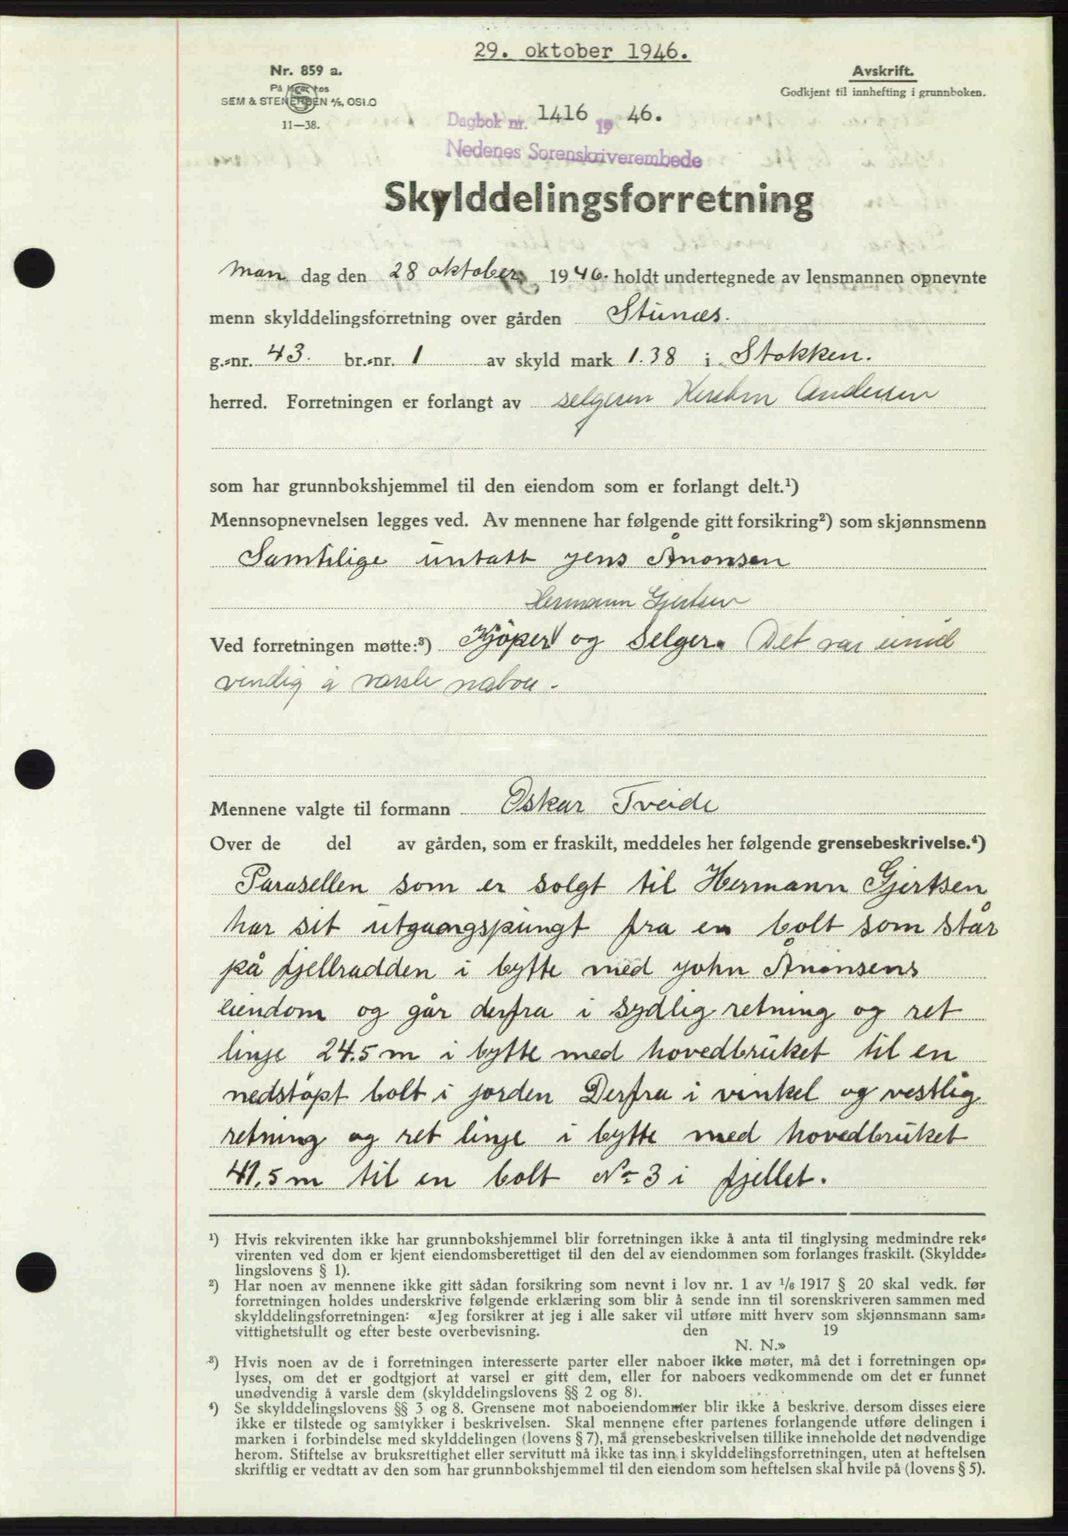 29. oktober 1946.
Nr. 859 a.
På lager hos
SEM & STENERSEN A/S, OSLO
11—38.
Avskrift.
Godkjent til innhefting i grunnboken.
Dagbok nr. 1416 19 46.
Nedenes Sorenskriverembede
Skylddelingsforretning
Man dag den 28 oktober 1946. holdt undertegnede av lensmannen opnevnte
menn skylddelingsforretning over gården Stunæs.
g.-nr. 43. br.-nr. 1 av skyld mark 1.38 i Stokken.
herred. Forretningen er forlangt av selgeren Andersen
som har grunnbokshjemmel til den eiendom som er forlangt delt.¹)
Mennsopnevnelsen legges ved. Av mennene har følgende gitt forsikring²) som skjønnsmenn
Samtlige untatt Jens Ånonsen
Hermann Gjertsen
Ved forretningen møtte:³) Kjöper og selger. Det var unöd
vendig å varsle naboer.
Mennene valgte til formann Oskar Tveide
Over de del av gården, som er fraskilt, meddeles her følgende grensebeskrivelse.⁴)
Parasellen som er solgt til Hermann Gjertsen
har sit utgangspungt fra en bolt som står
på fjellradden i bytte med John Ånonsens
eiendom og går derfra i sydlig retning og ret
linje 24.5 m i bytte med hovedbruket til en
nedstöpt bolt i jorden Derfra i vinkel og vestlig
retning og ret linje i bytte med hovedbruket
41,5 m til en bolt No 3 i fjellet.
¹) Hvis rekvirenten ikke har grunnbokshjemmel blir forretningen ikke å anta til tinglysing medmindre rek-
virenten ved dom er kjent eiendomsberettiget til den del av eiendommen som forlanges fraskilt. (Skyldde-
lingslovens § 1).
²) Har noen av mennene ikke gitt sådan forsikring som nevnt i lov nr. 1 av ¹/₆ 1917 § 20 skal vedk. før
forretningen holdes underskrive følgende erklæring som blir å sende inn til sorenskriveren sammen med
skylddelingsforretningen: «Jeg forsikrer at jeg i alle saker vil utføre mitt hverv som skjønnsmann sam-
vittighetsfullt og efter beste overbevisning. den 19
N. N.»
³) Hvis noen av de i forretningen interesserte parter eller naboer ikke møter, må det i forretningen op-
lyses, om det er godtgjort at varsel er gitt dem, eller for naboers vedkommende om det er funnet
unødvendig å varsle dem (skylddelingslovens §§ 2 og 8).
⁴) Se skylddelingslovens §§ 3 og 8. Grensene mot naboeiendommer blir ikke å beskrive, dersom disses eiere
ikke er tilstede og samtykker i beskrivelsen. Skal mennene efter partenes forlangende utføre delingen i
marken i forbindelse med skylddelingen (lovens § 7), må grensebeskrivelsen tillike inneholde det nødvendige
herom. Stiftelse av bruksrettighet eller servitutt må ikke tas inn i skylddelingsforretningen, uten at heftelsen
skriftlig er vedtatt av den som har grunnbokshjemmel til den eiendom som heftelsen skal hvile på (lovens § 5).